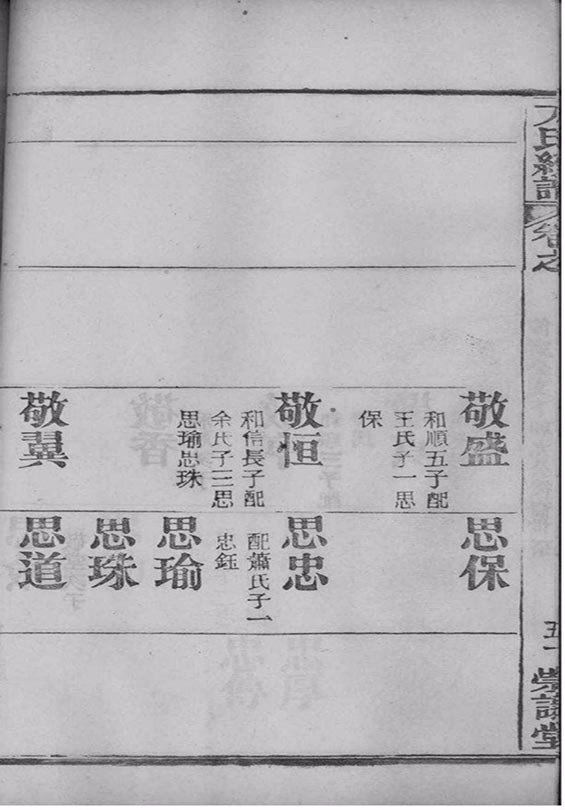 方氏總譜 卷之
五十 崇讓堂
敬盛
和順五子配
王氏子一思
保
敬恒
和信長子配
余氏子三思
思瑜思珠
敬翼
思保
思忠
配蕭氏子一
忠鈺
思瑜
思珠
思道